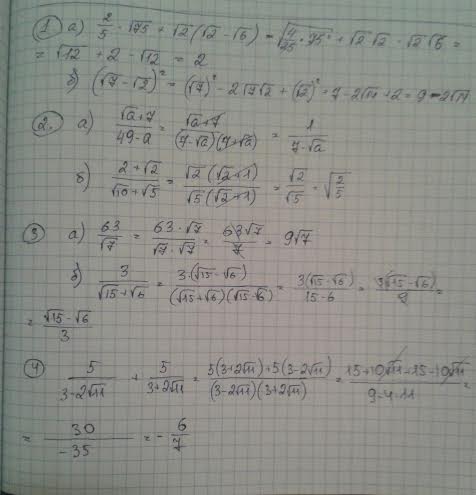 ① а) 2/5 · √75 + √2(√2 - √6) = √(4/25 · 75) + √2√2 - √2√6 =
= √12 + 2 - √12 = 2
б) (√7 - √2)² = (√7)² - 2√7√2 + (√2)² = 7 - 2√14 + 2 = 9 - 2√14
②. а) (√a + 7)/(49 - a) = (√a + 7)/((7 - √a)(7 + √a)) = 1/(7 - √a)
б) (2 + √2)/(√10 + √5) = √2(√2 + 1)/(√5(√2 + 1)) = √2/√5 = √(2/5)
③ а) 63/√7 = (63 · √7)/(√7 · √7) = 63√7/7 = 9√7
б) 3/(√15 + √6) = 3·(√15 - √6)/((√15 + √6)(√15 - √6)) = 3(√15 - √6)/(15 - 6) = 3(√15 - √6)/9 =
= (√15 - √6)/3
④ 5/(3 - 2√11) + 5/(3 + 2√11) = (5(3 + 2√11) + 5(3 - 2√11))/((3 - 2√11)(3 + 2√11)) = (15 + 10√11 + 15 - 10√11)/(9 - 4·11) =
= 30/(-35) = - 6/7